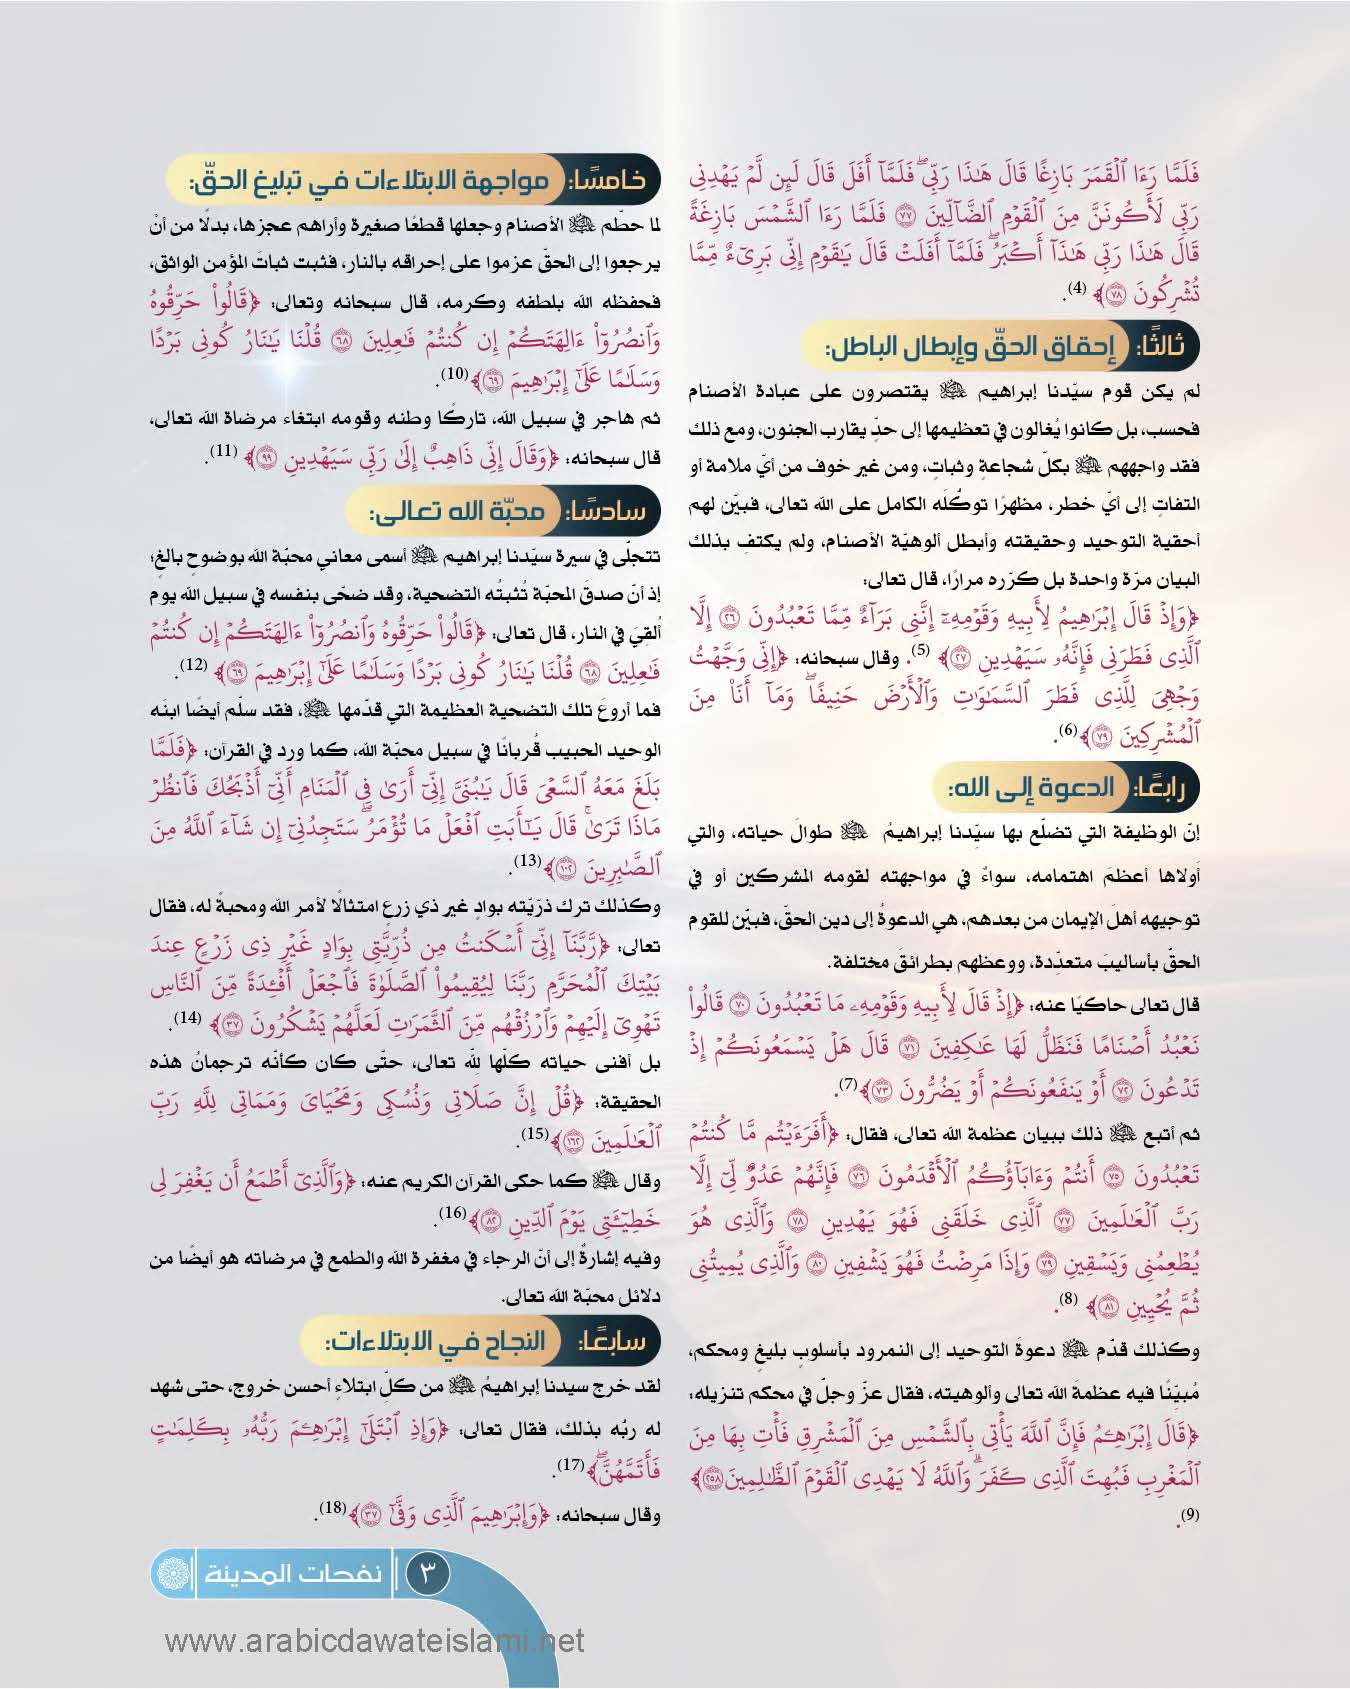 فَلَمَّا رَءَا ٱلْقَمَرَ بَازِغًا قَالَ هَٰذَا رَبِّي ۖ فَلَمَّآ أَفَلَ قَالَ لَئِن لَّمْ يَهْدِنِى
رَبِّي لَأَكُونَنَّ مِنَ ٱلْقَوْمِ ٱلضَّآلِّينَ ۝٧٧ فَلَمَّا رَءَا ٱلشَّمْسَ بَازِغَةً
قَالَ هَٰذَا رَبِّي هَٰذَآ أَكْبَرُ ۖ فَلَمَّآ أَفَلَتْ قَالَ يَٰقَوْمِ إِنِّي بَرِيٓءٌ مِّمَّا
تُشْرِكُونَ ۝٧٨﴾ (4).
ثالثًا: إحقاق الحقّ وإبطال الباطل:
لم يكن قوم سيّدنا إبراهيم ﷺ يقتصرون على عبادة الأصنام
فحسب، بل كانوا يُغالون في تعظيمها إلى حدّ يقارب الجنون، ومع ذلك
فقد واجههم ﷺ بكلّ شجاعةٍ وثباتٍ، ومن غير خوف من أيّ ملامة أو
التفاتٍ إلى أيّ خطر، مظهرًا توكُّلَه الكامل على الله تعالى، فبيّن لهم
أحقية التوحيد وحقيقته وأبطل ألوهيّة الأصنام، ولم يكتفِ بذلك
البيان مرّة واحدة بل كرّره مرارًا، قال تعالى:
﴿وَإِذْ قَالَ إِبْرَٰهِيمُ لِأَبِيهِ وَقَوْمِهِۦٓ إِنَّنِي بَرَآءٌ مِّمَّا تَعْبُدُونَ ۝٢٦ إِلَّا
ٱلَّذِي فَطَرَنِي فَإِنَّهُۥ سَيَهْدِينِ ۝٢٧﴾ (5). وقال سبحانه: ﴿إِنِّي وَجَّهْتُ
وَجْهِيَ لِلَّذِي فَطَرَ ٱلسَّمَٰوَٰتِ وَٱلْأَرْضَ حَنِيفًا ۖ وَمَآ أَنَا۠ مِنَ
ٱلْمُشْرِكِينَ ۝٧٩﴾(6).
رابعًا: الدعوة إلى الله:
إنّ الوظيفة التي تضلّع بها سيّدنا إبراهيمُ ﷺ طوالَ حياته، والتي
أَولاها أعظمَ اهتمامه، سواءٌ في مواجهته لقومه المشركين أو في
توجيهه أهلَ الإيمان من بعدهم، هي الدعوةُ إلى دين الحقّ، فبيّن للقوم
الحقّ بأساليبَ متعدّدة، ووعظهم بطرائقَ مختلفة.
قال تعالى حاكيًا عنه: ﴿إِذْ قَالَ لِأَبِيهِ وَقَوْمِهِۦ مَا تَعْبُدُونَ ۝٧٠ قَالُوا۟
نَعْبُدُ أَصْنَامًا فَنَظَلُّ لَهَا عَٰكِفِينَ ۝٧١ قَالَ هَلْ يَسْمَعُونَكُمْ إِذْ
تَدْعُونَ ۝٧٢ أَوْ يَنفَعُونَكُمْ أَوْ يَضُرُّونَ ۝٧٣﴾(7).
ثم أتبع ﷺ ذلك ببيان عظمة الله تعالى، فقال: ﴿أَفَرَءَيْتُم مَّا كُنتُمْ
تَعْبُدُونَ ۝٧٥ أَنتُمْ وَءَابَآؤُكُمُ ٱلْأَقْدَمُونَ ۝٧٦ فَإِنَّهُمْ عَدُوٌّ لِّيٓ إِلَّا
رَبَّ ٱلْعَٰلَمِينَ ۝٧٧ ٱلَّذِي خَلَقَنِي فَهُوَ يَهْدِينِ ۝٧٨ وَٱلَّذِي هُوَ
يُطْعِمُنِي وَيَسْقِينِ ۝٧٩ وَإِذَا مَرِضْتُ فَهُوَ يَشْفِينِ ۝٨٠ وَٱلَّذِي يُمِيتُنِي
ثُمَّ يُحْيِينِ ۝٨١﴾ (8).
وكذلك قدّم ﷺ دعوةَ التوحيد إلى النمرود بأسلوبٍ بليغٍ ومحكم،
مُبيّنًا فيه عظمةَ الله تعالى وألوهيته، فقال عزّ وجلّ في محكم تنزيله:
﴿قَالَ إِبْرَٰهِـۧمُ فَإِنَّ ٱللَّهَ يَأْتِي بِٱلشَّمْسِ مِنَ ٱلْمَشْرِقِ فَأْتِ بِهَا مِنَ
ٱلْمَغْرِبِ فَبُهِتَ ٱلَّذِي كَفَرَ ۗ وَٱللَّهُ لَا يَهْدِي ٱلْقَوْمَ ٱلظَّٰلِمِينَ ۝٢٥٨﴾
(9).
خامسًا: مواجهة الابتلاءات في تبليغ الحقّ:
لما حطّم ﷺ الأصنام وجعلها قطعًا صغيرة وأراهم عجزها، بدلًا من أنْ
يرجعوا إلى الحقّ عزموا على إحراقه بالنار، فثبت ثباتَ المؤمن الواثق،
فحفظه الله بلطفه وكرمه، قال سبحانه وتعالى: ﴿قَالُوا۟ حَرِّقُوهُ
وَٱنصُرُوٓا۟ ءَالِهَتَكُمْ إِن كُنتُمْ فَٰعِلِينَ ۝٦٨ قُلْنَا يَٰنَارُ كُونِي بَرْدًا
وَسَلَٰمًا عَلَىٰٓ إِبْرَٰهِيمَ ۝٦٩﴾(10).
ثم هاجر في سبيل الله، تاركًا وطنه وقومه ابتغاء مرضاة الله تعالى،
قال سبحانه: ﴿وَقَالَ إِنِّي ذَاهِبٌ إِلَىٰ رَبِّي سَيَهْدِينِ ۝٩٩﴾ (11).
سادسًا: محبّة الله تعالى:
تتجلّى في سيرة سيّدنا إبراهيم ﷺ أسمى معاني محبّة الله بوضوحٍ بالغٍ؛
إذ أنّ صدقَ المحبّة تُثبتُه التضحية، وقد ضحّى بنفسه في سبيل الله يوم
أُلقِيَ في النار، قال تعالى: ﴿قَالُوا۟ حَرِّقُوهُ وَٱنصُرُوٓا۟ ءَالِهَتَكُمْ إِن كُنتُمْ
فَٰعِلِينَ ۝٦٨ قُلْنَا يَٰنَارُ كُونِي بَرْدًا وَسَلَٰمًا عَلَىٰٓ إِبْرَٰهِيمَ ۝٦٩﴾ (12).
فما أروعَ تلك التضحية العظيمة التي قدّمها ﷺ، فقد سلّم أيضًا ابنَه
الوحيد الحبيب قُربانًا في سبيل محبّة الله، كما ورد في القرآن: ﴿فَلَمَّا
بَلَغَ مَعَهُ ٱلسَّعْيَ قَالَ يَٰبُنَيَّ إِنِّيٓ أَرَىٰ فِي ٱلْمَنَامِ أَنِّيٓ أَذْبَحُكَ فَٱنظُرْ
مَاذَا تَرَىٰ ۚ قَالَ يَٰٓأَبَتِ ٱفْعَلْ مَا تُؤْمَرُ ۖ سَتَجِدُنِيٓ إِن شَآءَ ٱللَّهُ مِنَ
ٱلصَّٰبِرِينَ ۝١٠٢﴾(13).
وكذلك ترك ذرّيّته بوادٍ غير ذي زرعٍ امتثالًا لأمر الله ومحبةً له، فقال
تعالى: ﴿رَّبَّنَآ إِنِّيٓ أَسْكَنتُ مِن ذُرِّيَّتِي بِوَادٍ غَيْرِ ذِي زَرْعٍ عِندَ
بَيْتِكَ ٱلْمُحَرَّمِ رَبَّنَا لِيُقِيمُوا۟ ٱلصَّلَوٰةَ فَٱجْعَلْ أَفْـِٔدَةً مِّنَ ٱلنَّاسِ
تَهْوِيٓ إِلَيْهِمْ وَٱرْزُقْهُم مِّنَ ٱلثَّمَرَٰتِ لَعَلَّهُمْ يَشْكُرُونَ ۝٣٧﴾ (14).
بل أفنى حياته كلّها للّه تعالى، حتّى كان كأنّه ترجمانُ هذه
الحقيقة: ﴿قُلْ إِنَّ صَلَاتِي وَنُسُكِي وَمَحْيَايَ وَمَمَاتِي لِلَّهِ رَبِّ
ٱلْعَٰلَمِينَ ۝١٦٢﴾(15).
وقال ﷺ كما حكى القرآن الكريم عنه: ﴿وَٱلَّذِيٓ أَطْمَعُ أَن يَغْفِرَ لِي
خَطِيٓـَٔتِي يَوْمَ ٱلدِّينِ ۝٨٢﴾(16).
وفيه إشارةٌ إلى أنّ الرجاء في مغفرة الله والطمع في مرضاته هو أيضًا من
دلائل محبّة الله تعالى.
سابعًا: النجاح في الابتلاءات:
لقد خرج سيدنا إبراهيمُ ﷺ من كلّ ابتلاءٍ أحسن خروج، حتى شهد
له ربّه بذلك، فقال تعالى: ﴿وَإِذِ ٱبْتَلَىٰٓ إِبْرَٰهِـۧمَ رَبُّهُۥ بِكَلِمَٰتٍ
فَأَتَمَّهُنَّ ۖ﴾(17).
وقال سبحانه: ﴿وَإِبْرَٰهِيمَ ٱلَّذِي وَفَّىٰٓ ۝٣٧﴾(18).
٣ نفحات المدينة
www.arabicdawateislami.net